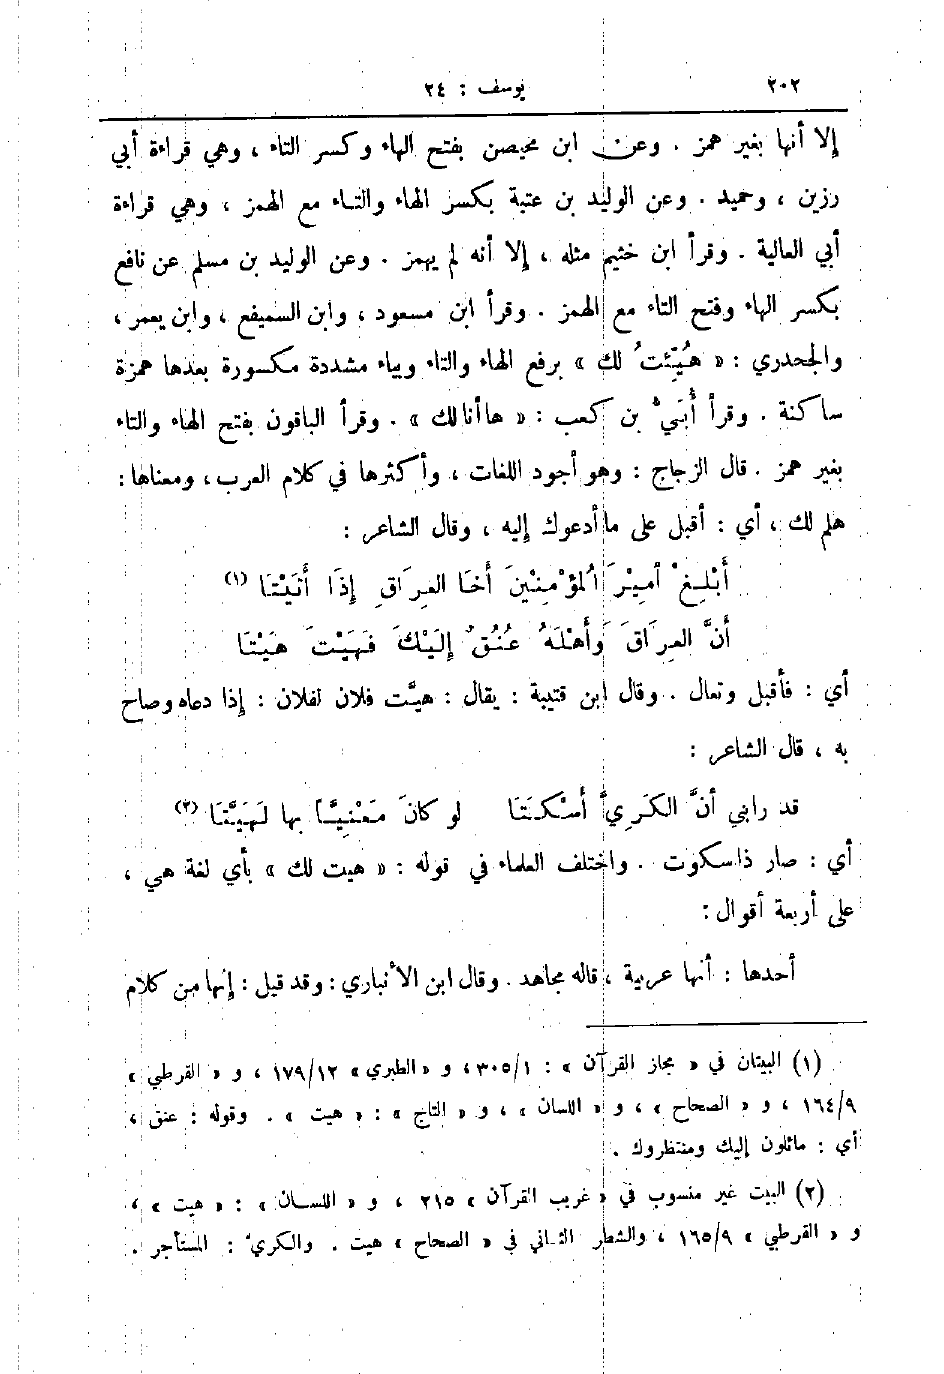 ٢٠٢ يوسف : ٢٤
إلا أنها بغير همز . وعن ابن محيصن بفتح الهاء وكسر التاء ، وهي قراءة أبي
رزين ، وحميد . وعن الوليد بن عتبة بكسر الهاء والتاء مع الهمز ، وهي قراءة
أبي العالية . وقرأ ابن خثيم مثله ، إلا أنه لم يهمز . وعن الوليد بن مسلم عن نافع
بكسر الهاء وفتح التاء مع الهمز . وقرأ ابن مسعود ، وابن السميفع ، وابن يعمر ،
والجحدري : « هُيِّئتُ لك » برفع الهاء والتاء وبياء مشددة مكسورة بعدها همزة
ساكنة . وقرأ أُبَيّ بن كعب : « ها أنا لك » . وقرأ الباقون بفتح الهاء والتاء
بغير همز . قال الزجاج : وهو أجود اللغات ، وأكثرها في كلام العرب ، ومعناها :
هلم لك ، أي : أقبل على ما أدعوك إليه ، وقال الشاعر :
أَبْلِغْ أَمِيْرَ المُؤْمِنْينَ أَخَا العِرَاقِ إِذَا أَتَيْتَا (١)
أَنَّ العِرَاقَ وَأَهْلَهُ عُنُقٌ إِلَيْكَ فَهَيْتَ هَيْتَا
أي : فأقبل وتعال . وقال ابن قتيبة : يقال : هيَّت فلان لفلان : إذا دعاه وصاح
به ، قال الشاعر :
قد رابني أنَّ الكَرِيَّ أَسْكَتَا لو كانَ مَعْنِيَّاً بها لَهَيَّتَا (٢)
أي : صار ذا سكوت . واختلف العلماء في قوله : « هيت لك » بأي لغة هي ،
على أربعة أقوال :
أحدها : أنها عربية ، قاله مجاهد . وقال ابن الأنباري : وقد قيل : إنها من كلام
(١) البيتان في « مجاز القرآن » : ٣٠٥/١ ، و « الطبري » ١٧٩/١٢ ، و « القرطبي »
١٦٤/٩ ، و « الصحاح » ، و « اللسان » ، و « التاج » : « هيت » . وقوله : عنق ،
أي : مائلون إليك ومنتظروك .
(٢) البيت غير منسوب في « غريب القرآن » ٢١٥ ، و « اللسان » : « هيت » ،
و « القرطبي » ١٦٥/٩ ، والشطر الثاني في « الصحاح » هيت . والكري : المستأجر .